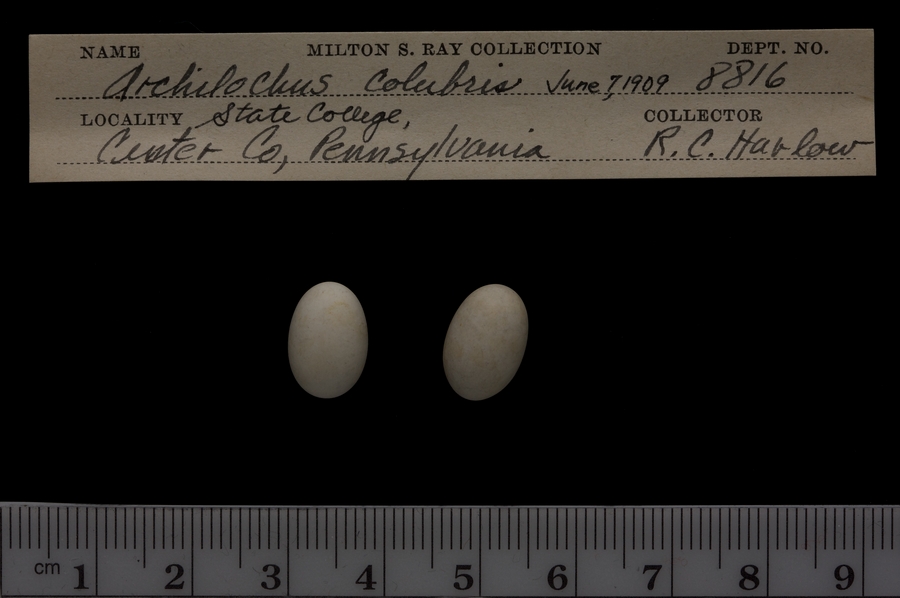 NAME MILTON S. RAY COLLECTION DEPT. NO.
Archilochus colubris June 7, 1909 8816
LOCALITY State College, COLLECTOR
Center Co, Pennsylvania R. C. Harlow
cm 1 2 3 4 5 6 7 8 9